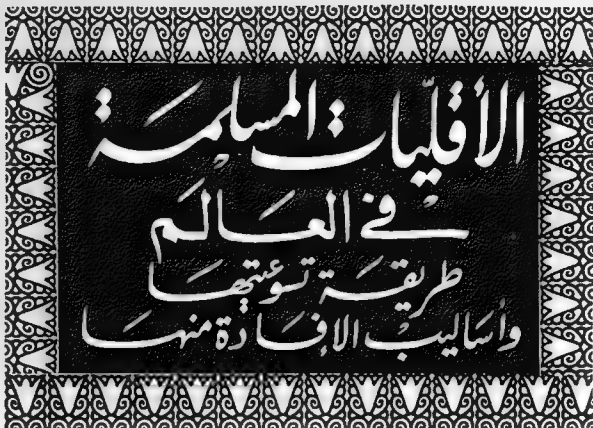 الأقليّات المسلمة
في العالم
طريقة توعيتها
وأساليب الإفادة منها